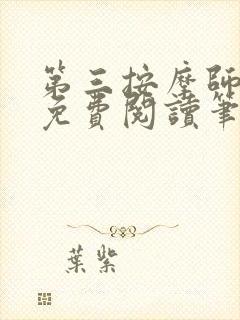 第三按摩師
免費閱讀筆
葉紫